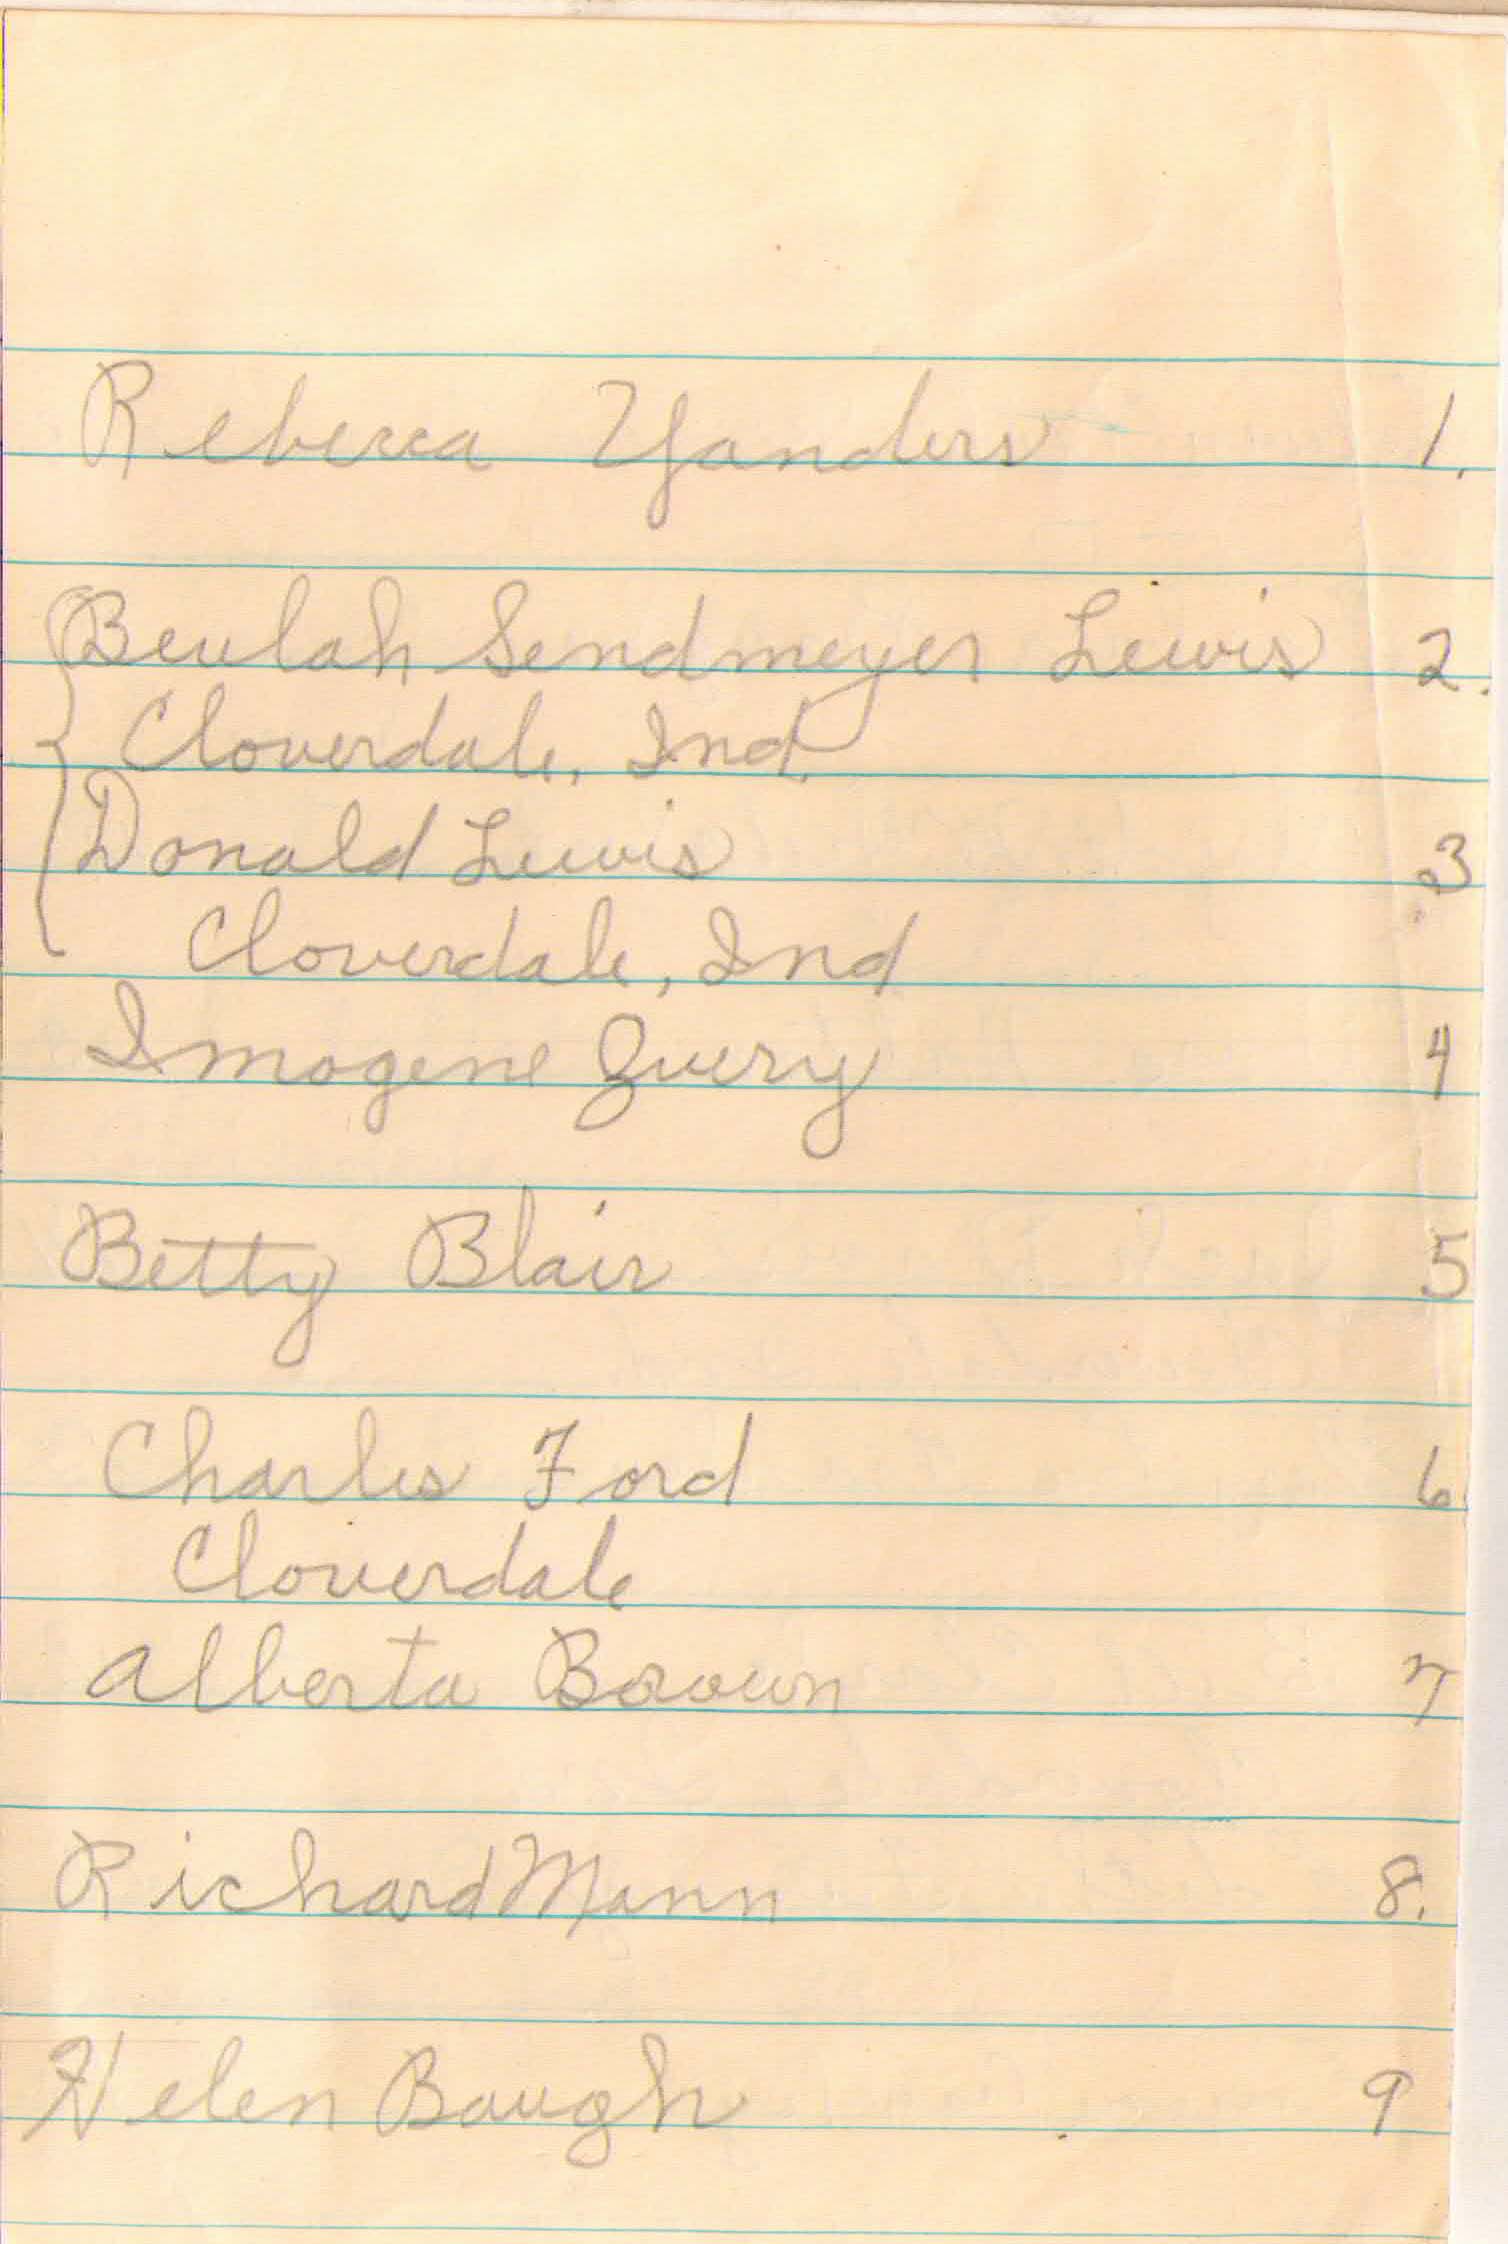 Rebecca Yanders 1.
Beulah Sendmeyer Lewis 2.
Cloverdale, Ind.
Donald Lewis 3
Cloverdale, Ind
Imogene Query 4
Betty Blair 5
Charles Ford 6
Cloverdale
Alberta Brown 7
Richard Mann 8.
Helen Baugh 9